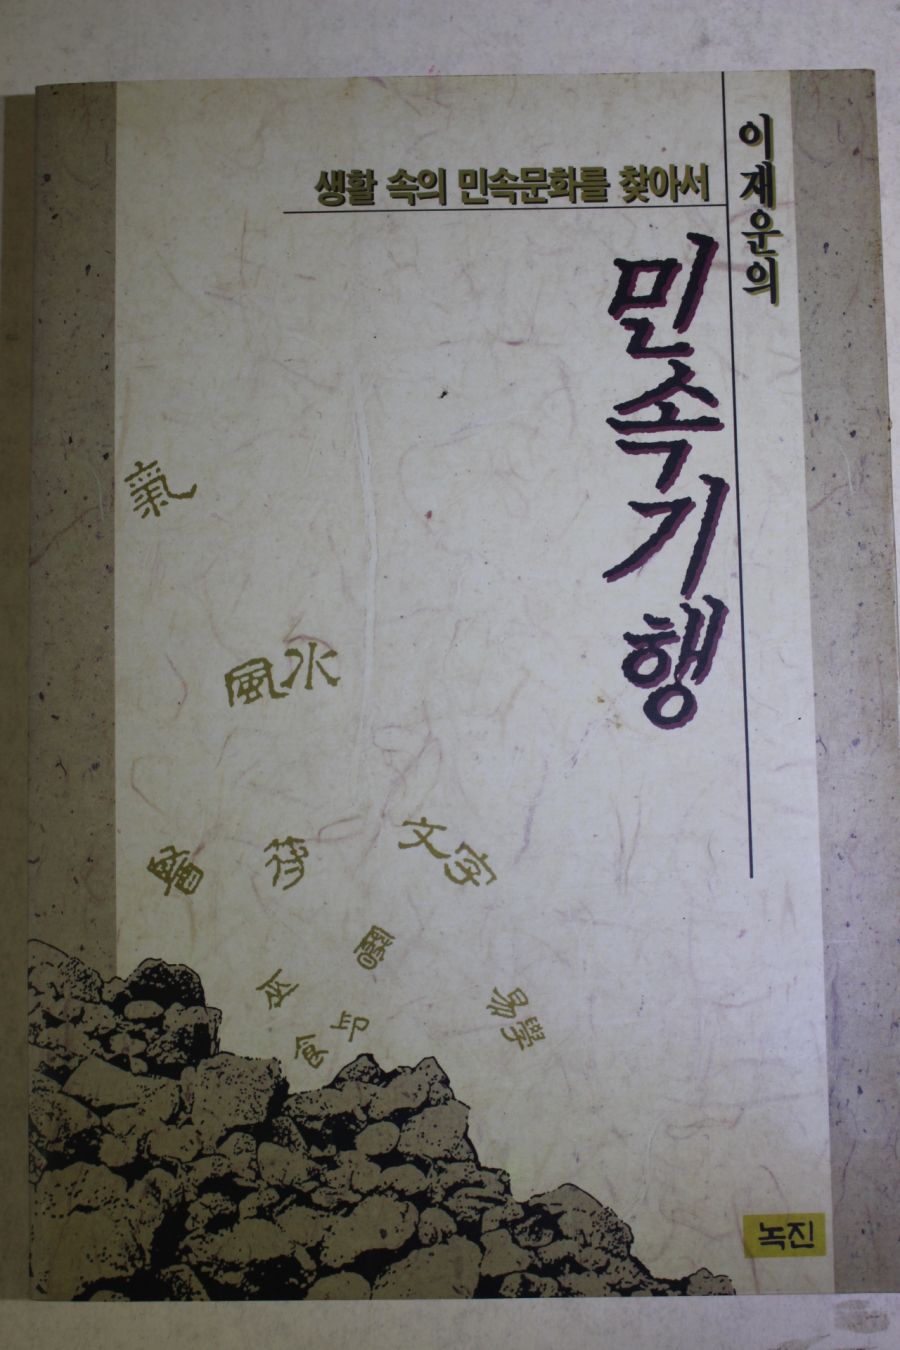 이재운의
생활 속의 민속문화를 찾아서
민속기행
氣
風水
文字
巫
食
易學
녹진